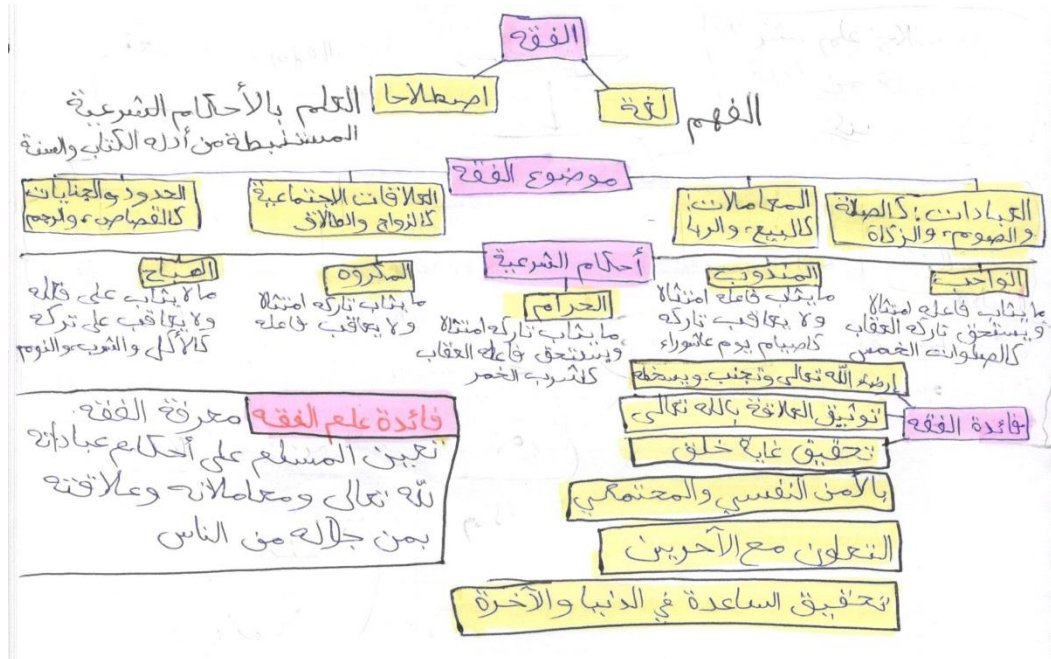 الفقه
لغة
الفهم
اصطلاحا
العلم بالأحكام الشرعية
المستنبطة من أدله الكتاب والسنة
موضوع الفقه
العبادات: كالصلاة
والصوم، والزكاة
المعاملات:
كالبيع، والربا
العلاقات الاجتماعية
كالزواج والطلاق
الحدود والجنايات
كالقصاص، والرجم
أحكام الشرعية
الواجب
ما يثاب فاعله امتثالا
ويستحق تاركه العقاب
كالصلوات الخمس
المندوب
ما يثاب فاعله امتثالا
ولا يعاقب تاركه
كاصيام يوم عاشوراء
الحرام
ما يثاب تاركه امتثالا
ويستحق فاعله العقاب
كشرب الخمر
المكروه
ما يثاب تاركه امتثالا
ولا يعاقب فاعله
المباح
ما لا يثاب على فاله
ولا يعاقب على تركه
كالأكل والشرب والنوم
فائدة الفقه
ارضاء الله تعالى وتجنب ويسخطه
توثيق العلاقة بالله تعالى
تحقيق غاية خلق
بالأمن النفسي والمجتمعي
التعاون مع الآخرين
تحقيق الساعدة في الدنيا والآخرة
فائدة علم الفقه معرفة الفقه
تعين المسلم على أحكام عباداته
لله تعالى ومعاملاته وعلاقته
بمن حوله من الناس